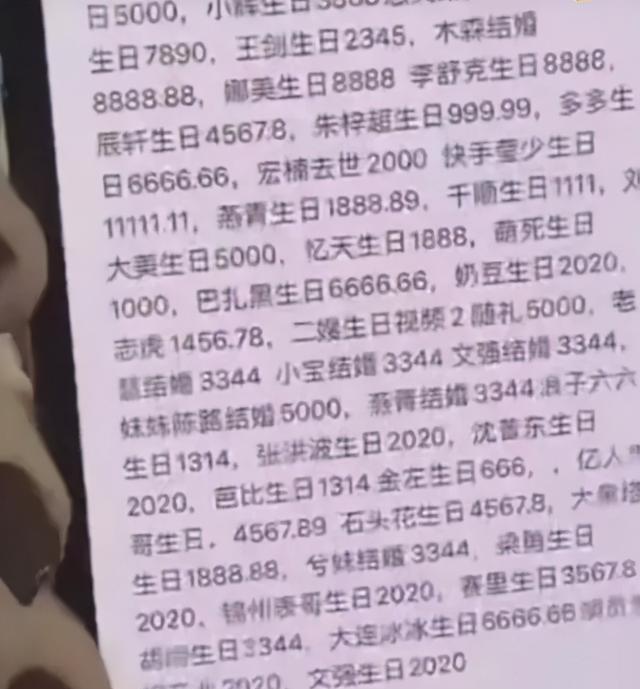 日5000，小辉生日
生日7890，王剑生日2345，木森结婚
8888.88，娜美生日8888 李舒克生日8888，
辰轩生日4567.8，朱梓超生日999.99，多多生
日6666.66，宏楠去世2000 快手莹少生日
11111.11，燕青生日1888.89，千顺生日1111，刘
大美生日5000，忆天生日1888，萌死生日
1000，巴扎黑生日6666.66，奶豆生日2020，
志虎1456.78，二嫂生日视频2随礼5000，老
结婚3344 小宝结婚3344 文强结婚3344，
妹妹陈路结婚5000，燕青结婚3344浪子六六
生日1314，张洪波生日2020，沈晋东生日
2020，芭比生日1314 金左生日666，，亿人
哥生日，4567.89 石头花生日4567.8，大
生日1888.88，兮妹结婚3344，梁腾生日
2020，锦州表哥生日2020，赛里生日3567.8
生日3344，大连冰冰生日6666.66
2020，文强生日2020